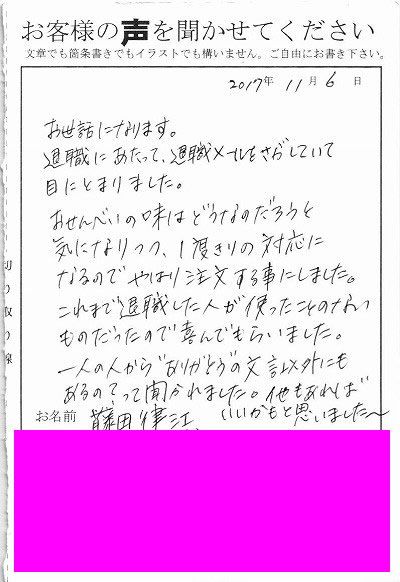 お客様の声を聞かせてください
文章でも箇条書きでもイラストでも構いません。ご自由にお書き下さい。
2017年 11月 6日
お世話になります。
退職にあたって、退職メールをさがしていて
目にとまりました。
おせんべいの味はどうなのだろうと
気になりつつ、1度きりの対応に
なるのでやはり注文する事にしました。
これまで退職した人が使ったことのない
ものだったので喜んでもらいました。
一人の人から"ありがとう"の文言以外にも
あるの?って聞かれました。他もあれば
いいかもと思いました〜
お名前 藤田律江
切り取り線